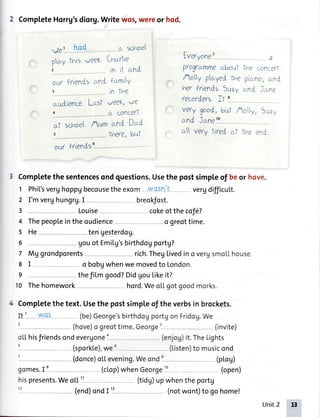 2 Complete Harry's diary. Write was, were or had.
We¹ had a school
play this week. Charlie
² in it and
our friends and family
³ in the
audience. Last week, we
⁴ a concert
at school. Mum and Dad
⁵ there, but
our friends⁶
Everyone⁷ a
programme about the concert.
Molly played the piano, and
her friends Suzy and Jane
recorders. It ⁸
very good, but Molly, Suzy
and Jane¹⁰
all very tired at the end.
3 Complete the sentences and questions. Use the past simple of be or have.
1 Phil's very happy because the exam wasn't very difficult.
2 I'm very hungry. I breakfast.
3 Louise cake at the café?
4 The people in the audience a great time.
5 He ten yesterday.
6 you at Emily's birthday party?
7 My grandparents rich. They lived in a very small house.
8 I a baby when we moved to London.
9 the film good? Did you like it?
10 The homework hard. We all got good marks.
4 Complete the text. Use the past simple of the verbs in brackets.
It ¹ was (be) George's birthday party on Friday. We
² (have) a great time. George ³ (invite)
all his friends and everyone ⁴ (enjoy) it. The lights
⁵ (sparkle), we ⁶ (listen) to music and
⁷ (dance) all evening. We and ⁸ (play)
games. I ⁹ (clap) when George ¹⁰ (open)
his presents. We all ¹¹ (tidy) up when the party
¹² (end) and I ¹³ (not want) to go home!
Unit 2 13